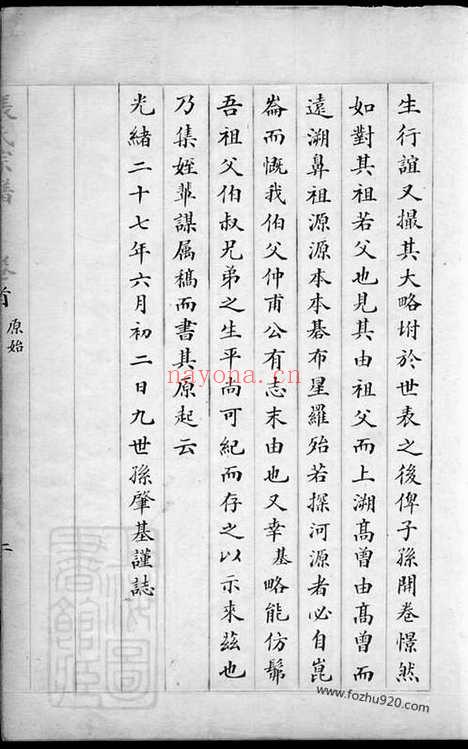 生行誼又撮其大略坿於世表之後俾子孫開卷憬然
如對其祖若父也見其由祖父而上溯高曾由高曾而
遠溯鼻祖源源本本碁布星羅殆若探河源者必自崑
崙而慨我伯父仲甫公有志末由也又幸基略能仿髴
吾祖父伯叔兄弟之生平尚可紀而存之以示來茲也
乃集姪輩謀属稿而書其原起云
光緒二十七年六月初二日九世孫肇基謹誌
張氏宗譜
卷首
原始
二
nayona.cn
www.fozhu920.com